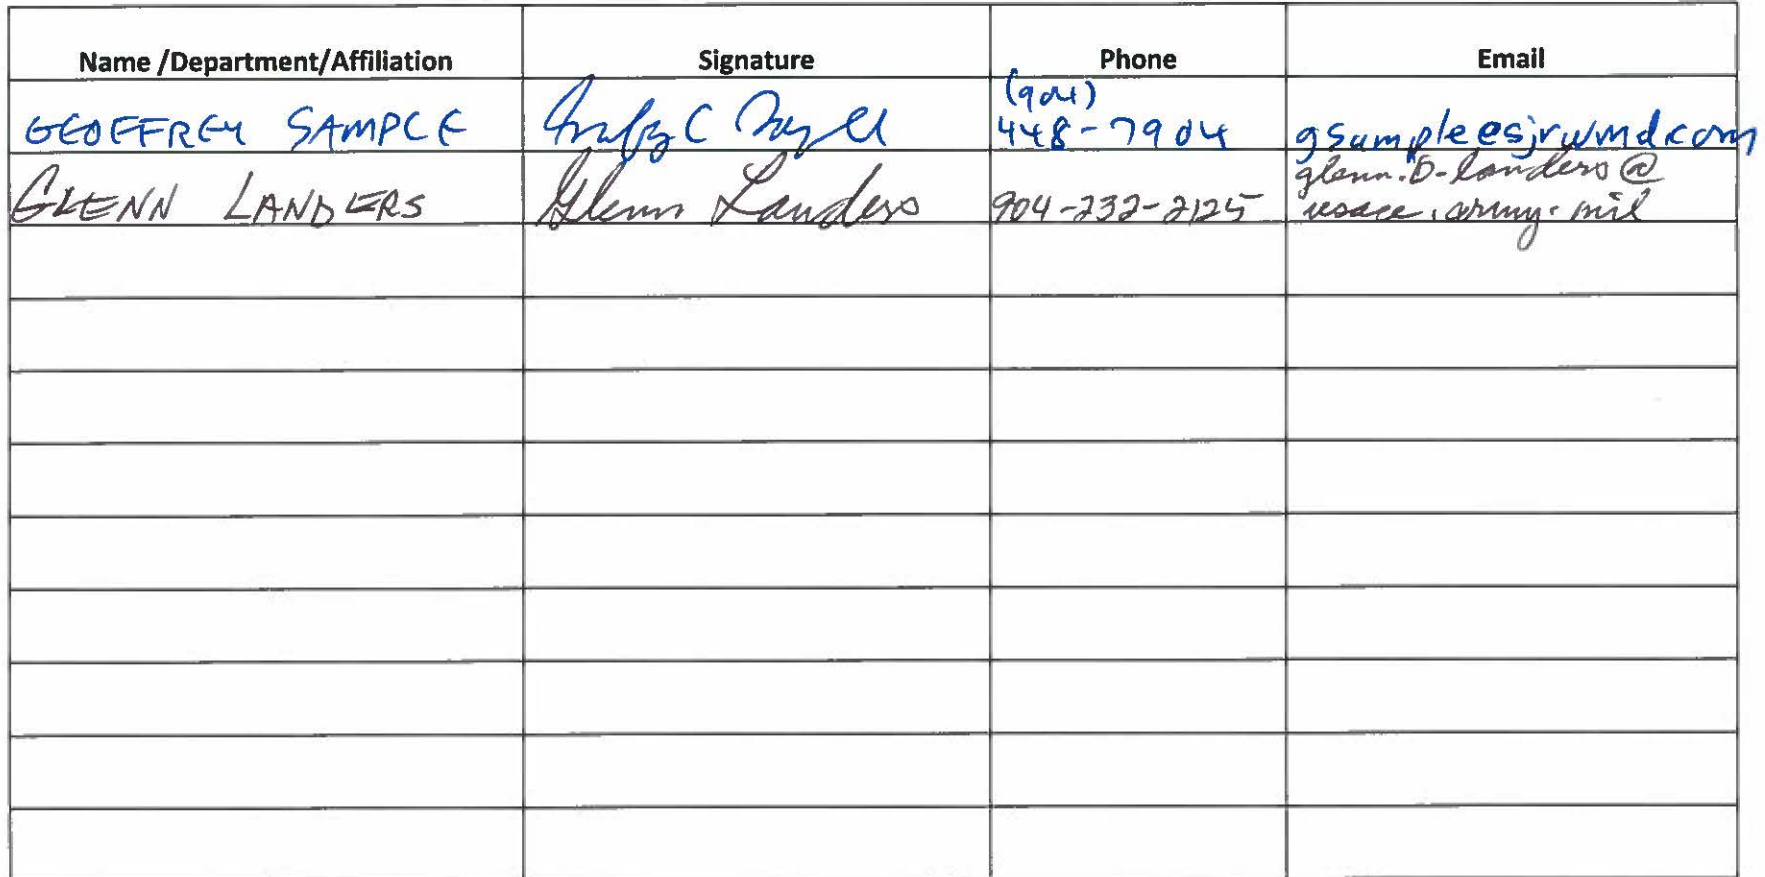 Name /Department/Affiliation Signature Phone Email
GEOFFREY SAMPLE (904)
448-7904 gsample@sjrwmd.com
GLENN LANDERS Glenn Landers 904-232-2125 glenn.D-landers@
usace.army.mil